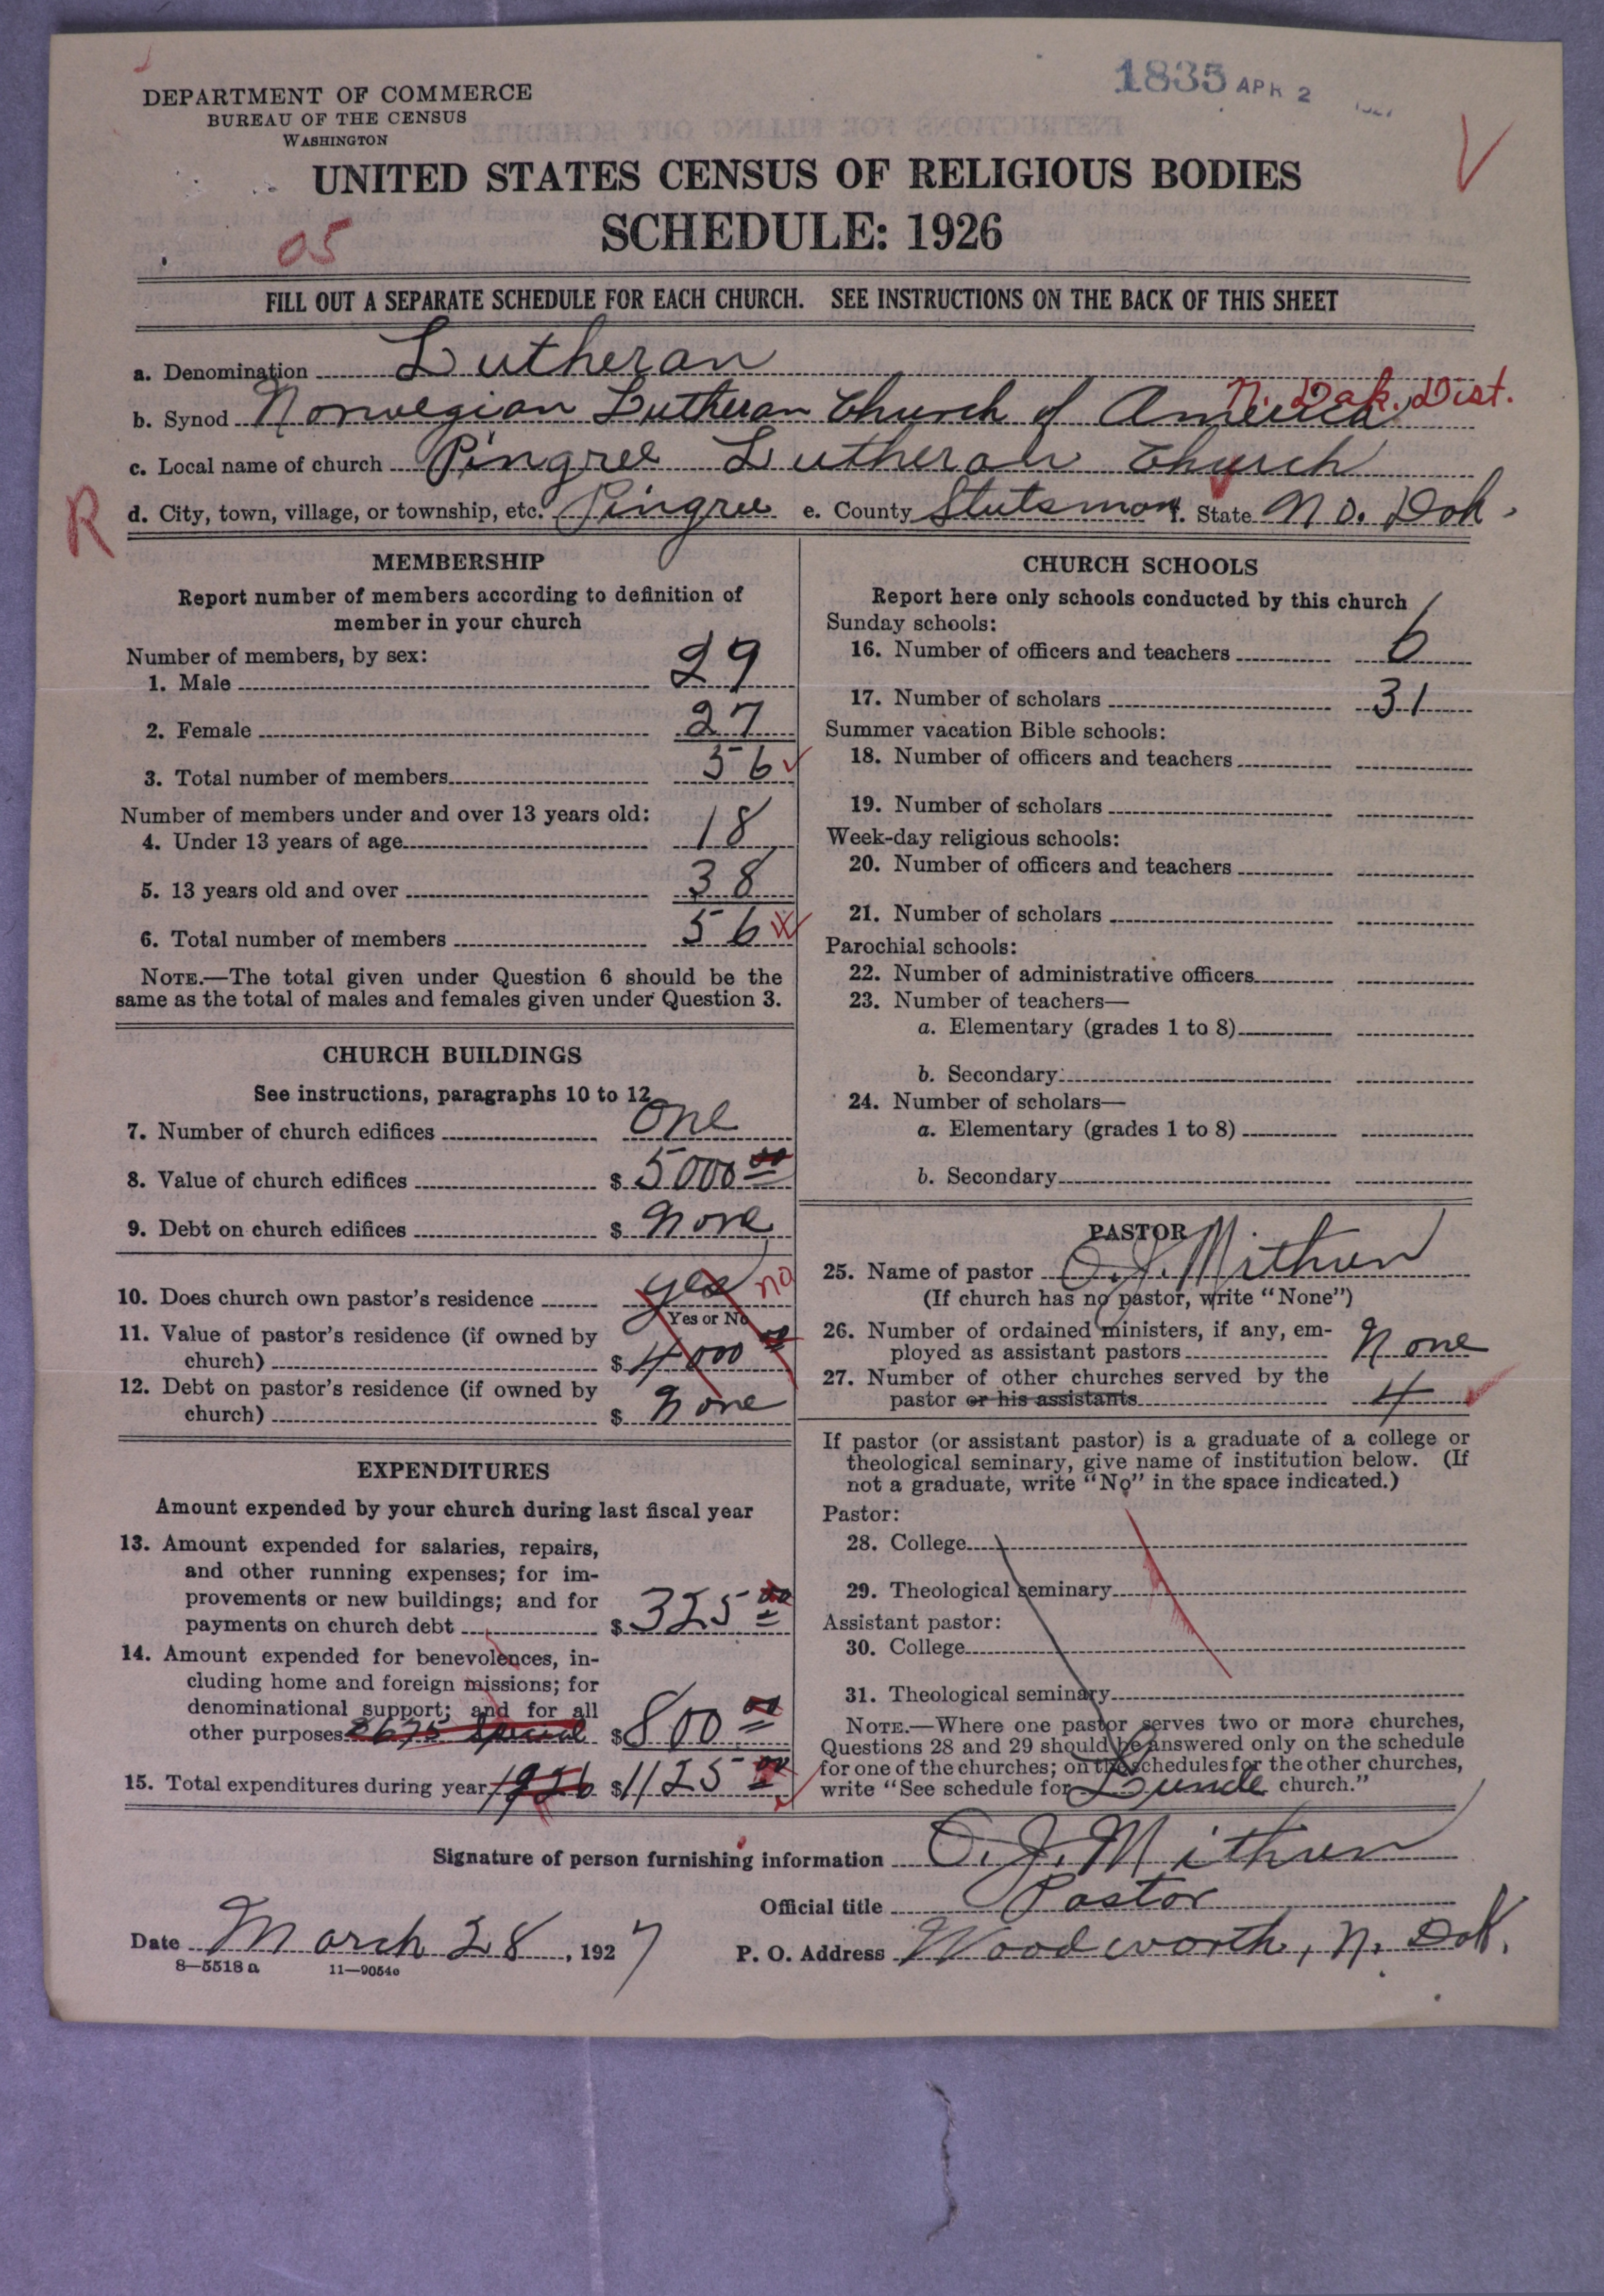 1835 APR 2
DEPARTMENT OF COMMERCE
BUREAU OF THE CENSUS
WASHINGTON
UNITED STATES CENSUS OF RELIGIOUS BODIES
SCHEDULE: 1926
05
FILL OUT A SEPARATE SCHEDULE FOR EACH CHURCH. SEE INSTRUCTIONS ON THE BACK OF THIS SHEET
a. Denomination Lutheran
N. Dak. Dist.
b. Synod Norwegian Lutheran Church of America
c. Local name of church Pingree Lutheran Church
R
d. City, town, village, or township, etc. Pingree e. County Stutsman f. State No. Dak.
MEMBERSHIP
Report number of members according to definition of
member in your church
Number of members, by sex:
1. Male 29
2. Female 27
3. Total number of members 56
Number of members under and over 13 years old:
4. Under 13 years of age 18
5. 13 years old and over 38
6. Total number of members 56
NOTE.—The total given under Question 6 should be the
same as the total of males and females given under Question 3.
CHURCH BUILDINGS
See instructions, paragraphs 10 to 12
7. Number of church edifices One
8. Value of church edifices $ 5000 00
9. Debt on church edifices $ None
10. Does church own pastor's residence yes no
Yes or No
11. Value of pastor's residence (if owned by
church) $ 4000 00
12. Debt on pastor's residence (if owned by
church) $ None
EXPENDITURES
Amount expended by your church during last fiscal year
13. Amount expended for salaries, repairs,
and other running expenses; for im-
provements or new buildings; and for
payments on church debt $ 325 00
14. Amount expended for benevolences, in-
cluding home and foreign missions; for
denominational support; and for all
other purposes special $ 800 00
15. Total expenditures during year 1926 $ 1125 00
CHURCH SCHOOLS
Report here only schools conducted by this church
Sunday schools:
16. Number of officers and teachers 6
17. Number of scholars 31
Summer vacation Bible schools:
18. Number of officers and teachers
19. Number of scholars
Week-day religious schools:
20. Number of officers and teachers
21. Number of scholars
Parochial schools:
22. Number of administrative officers
23. Number of teachers—
a. Elementary (grades 1 to 8)
b. Secondary
24. Number of scholars—
a. Elementary (grades 1 to 8)
b. Secondary
PASTOR
25. Name of pastor O. J. Mithun
(If church has no pastor, write "None")
26. Number of ordained ministers, if any, em-
ployed as assistant pastors None
27. Number of other churches served by the
pastor or his assistants 4
If pastor (or assistant pastor) is a graduate of a college or
theological seminary, give name of institution below. (If
not a graduate, write "No" in the space indicated.)
Pastor:
28. College
29. Theological seminary
Assistant pastor:
30. College
31. Theological seminary
NOTE.—Where one pastor serves two or more churches,
Questions 28 and 29 should be answered only on the schedule
for one of the churches; on the schedules for the other churches,
write "See schedule for Lunde church."
Signature of person furnishing information O. J. Mithun
Official title Pastor
Date March 28, 1927 P. O. Address Woodworth, N. Dak.
8—5518 a 11—9054c